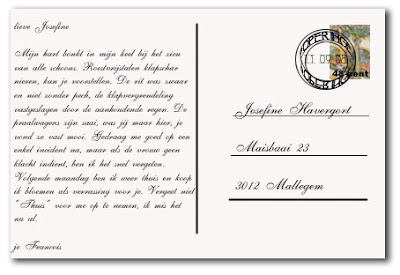 lieve Josefine
Mijn hart bonkt in mijn keel bij het zien
van alle schoons. Roestvrijstalen klapschar
nieren, kun je voorstellen. De rit was zwaar
en niet zonder pech, de klapvergrendeling
vastgeslagen door de aanhoudende regen. De
praalwagens zijn saai, was jij maar hier, je
vond ze vast mooi. Gedraag me goed op een
enkel incident na, maar als de vrouw geen
klacht indient, ben ik het snel vergeten.
Volgende maandag ben ik weer thuis en koop
ik bloemen als verrassing voor je. Vergeet niet
"Thuis" voor me op te nemen, ik mis het
nu al.
je Francois
48 cent
Josefine Havergort
Maisbaai 23
3012 Mallegem